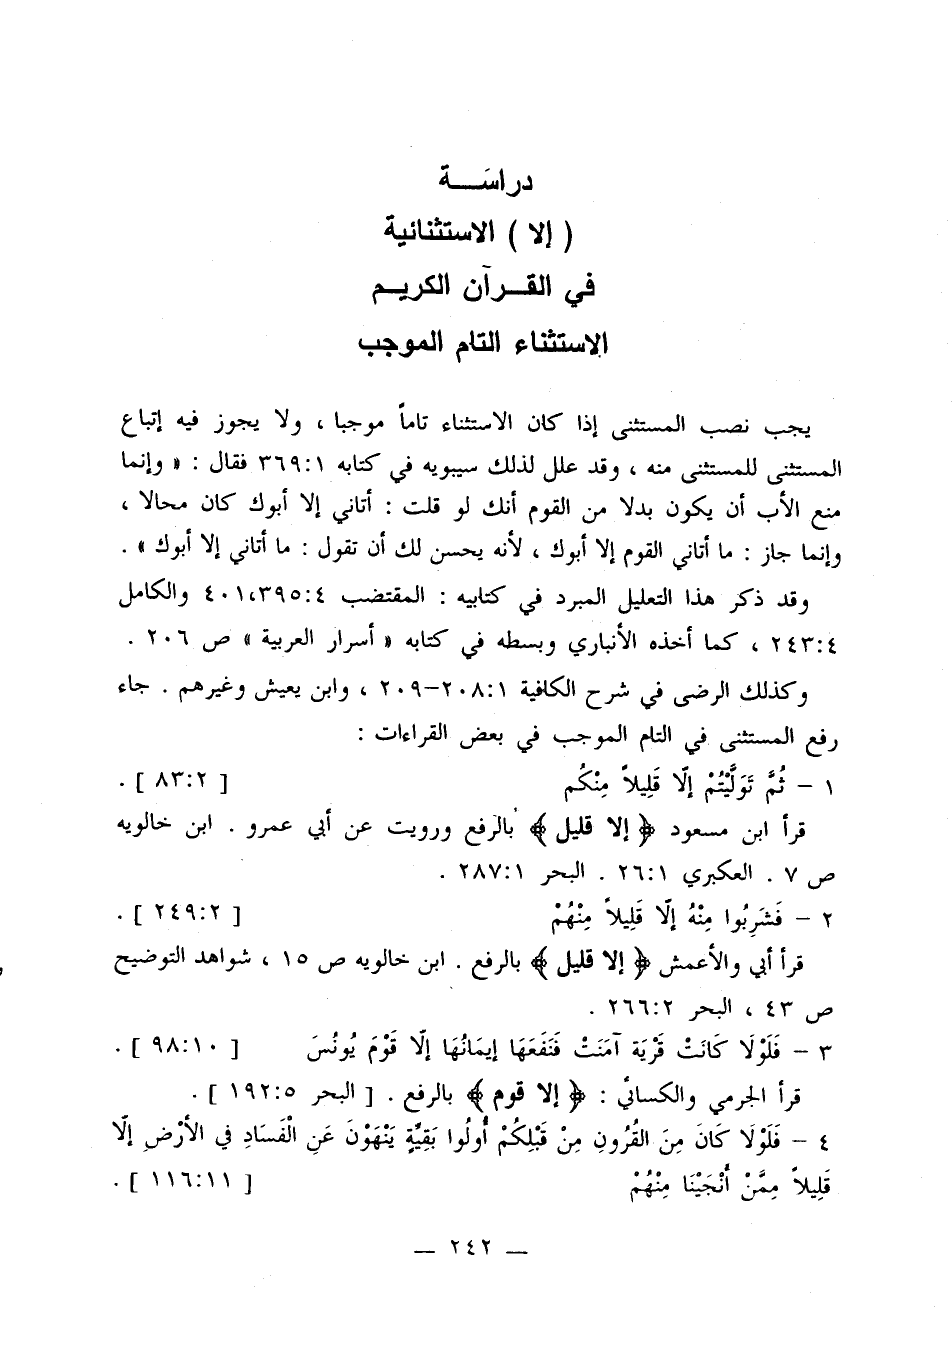 دراسة
( إلا ) الاستثنائية
في القرآن الكريم
الاستثناء التام الموجب
يجب نصب المستثنى إذا كان الاستثناء تاماً موجبا ، ولا يجوز فيه إتباع
المستثنى للمستثنى منه ، وقد علل لذلك سيبويه في كتابه ٣٦٩:١ فقال : « وإنما
منع الأب أن يكون بدلا من القوم أنك لو قلت : أتاني إلا أبوك كان محالا ،
وإنما جاز : ما أتاني القوم إلا أبوك ، لأنه يحسن لك أن تقول : ما أتاني إلا أبوك » .
وقد ذكر هذا التعليل المبرد في كتابيه : المقتضب ٤٠١،٣٩٥:٤ والكامل
٢٤٣:٤ ، كما أخذه الأنباري وبسطه في كتابه « أسرار العربية » ص ٢٠٦ .
وكذلك الرضى في شرح الكافية ٢٠٨:١–٢٠٩ ، وابن يعيش وغيرهم . جاء
رفع المستثنى في التام الموجب في بعض القراءات :
١ – ثُمَّ تَوَلَّيْتُمْ إِلَّا قَلِيلاً مِنْكُم [ ٨٣:٢ ] .
قرأ ابن مسعود ﴿ إلا قليل ﴾ بالرفع ورويت عن أبي عمرو . ابن خالويه
ص ٧ . العكبري ٢٦:١ . البحر ٢٨٧:١ .
٢ – فَشَرِبُوا مِنْهُ إِلَّا قَلِيلاً مِنْهُمْ [ ٢٤٩:٢ ] .
قرأ أبي والأعمش ﴿ إلا قليل ﴾ بالرفع . ابن خالويه ص ١٥ ، شواهد التوضيح
ص ٤٣ ، البحر ٢٦٦:٢ .
٣ – فَلَوْلَا كَانَتْ قَرْيَة آمَنَتْ فَنَفَعَهَا إِيمَانُهَا إِلَّا قَوْمَ يُونُسَ [ ٩٨:١٠ ] .
قرأ الجرمي والكسائي : ﴿ إلا قوم ﴾ بالرفع . [ البحر ١٩٢:٥ ] .
٤ – فَلَوْلَا كَانَ مِنَ القُرُونِ مِنْ قَبْلِكُمْ أُولُوا بَقِيَّةٍ يَنْهَوْنَ عَنِ الْفَسَادِ فِي الأَرْضِ إِلَّا
قَلِيلاً مِمَّنْ أَنْجَيْنَا مِنْهُمْ [ ١١٦:١١ ] .
— ٢٤٢ —